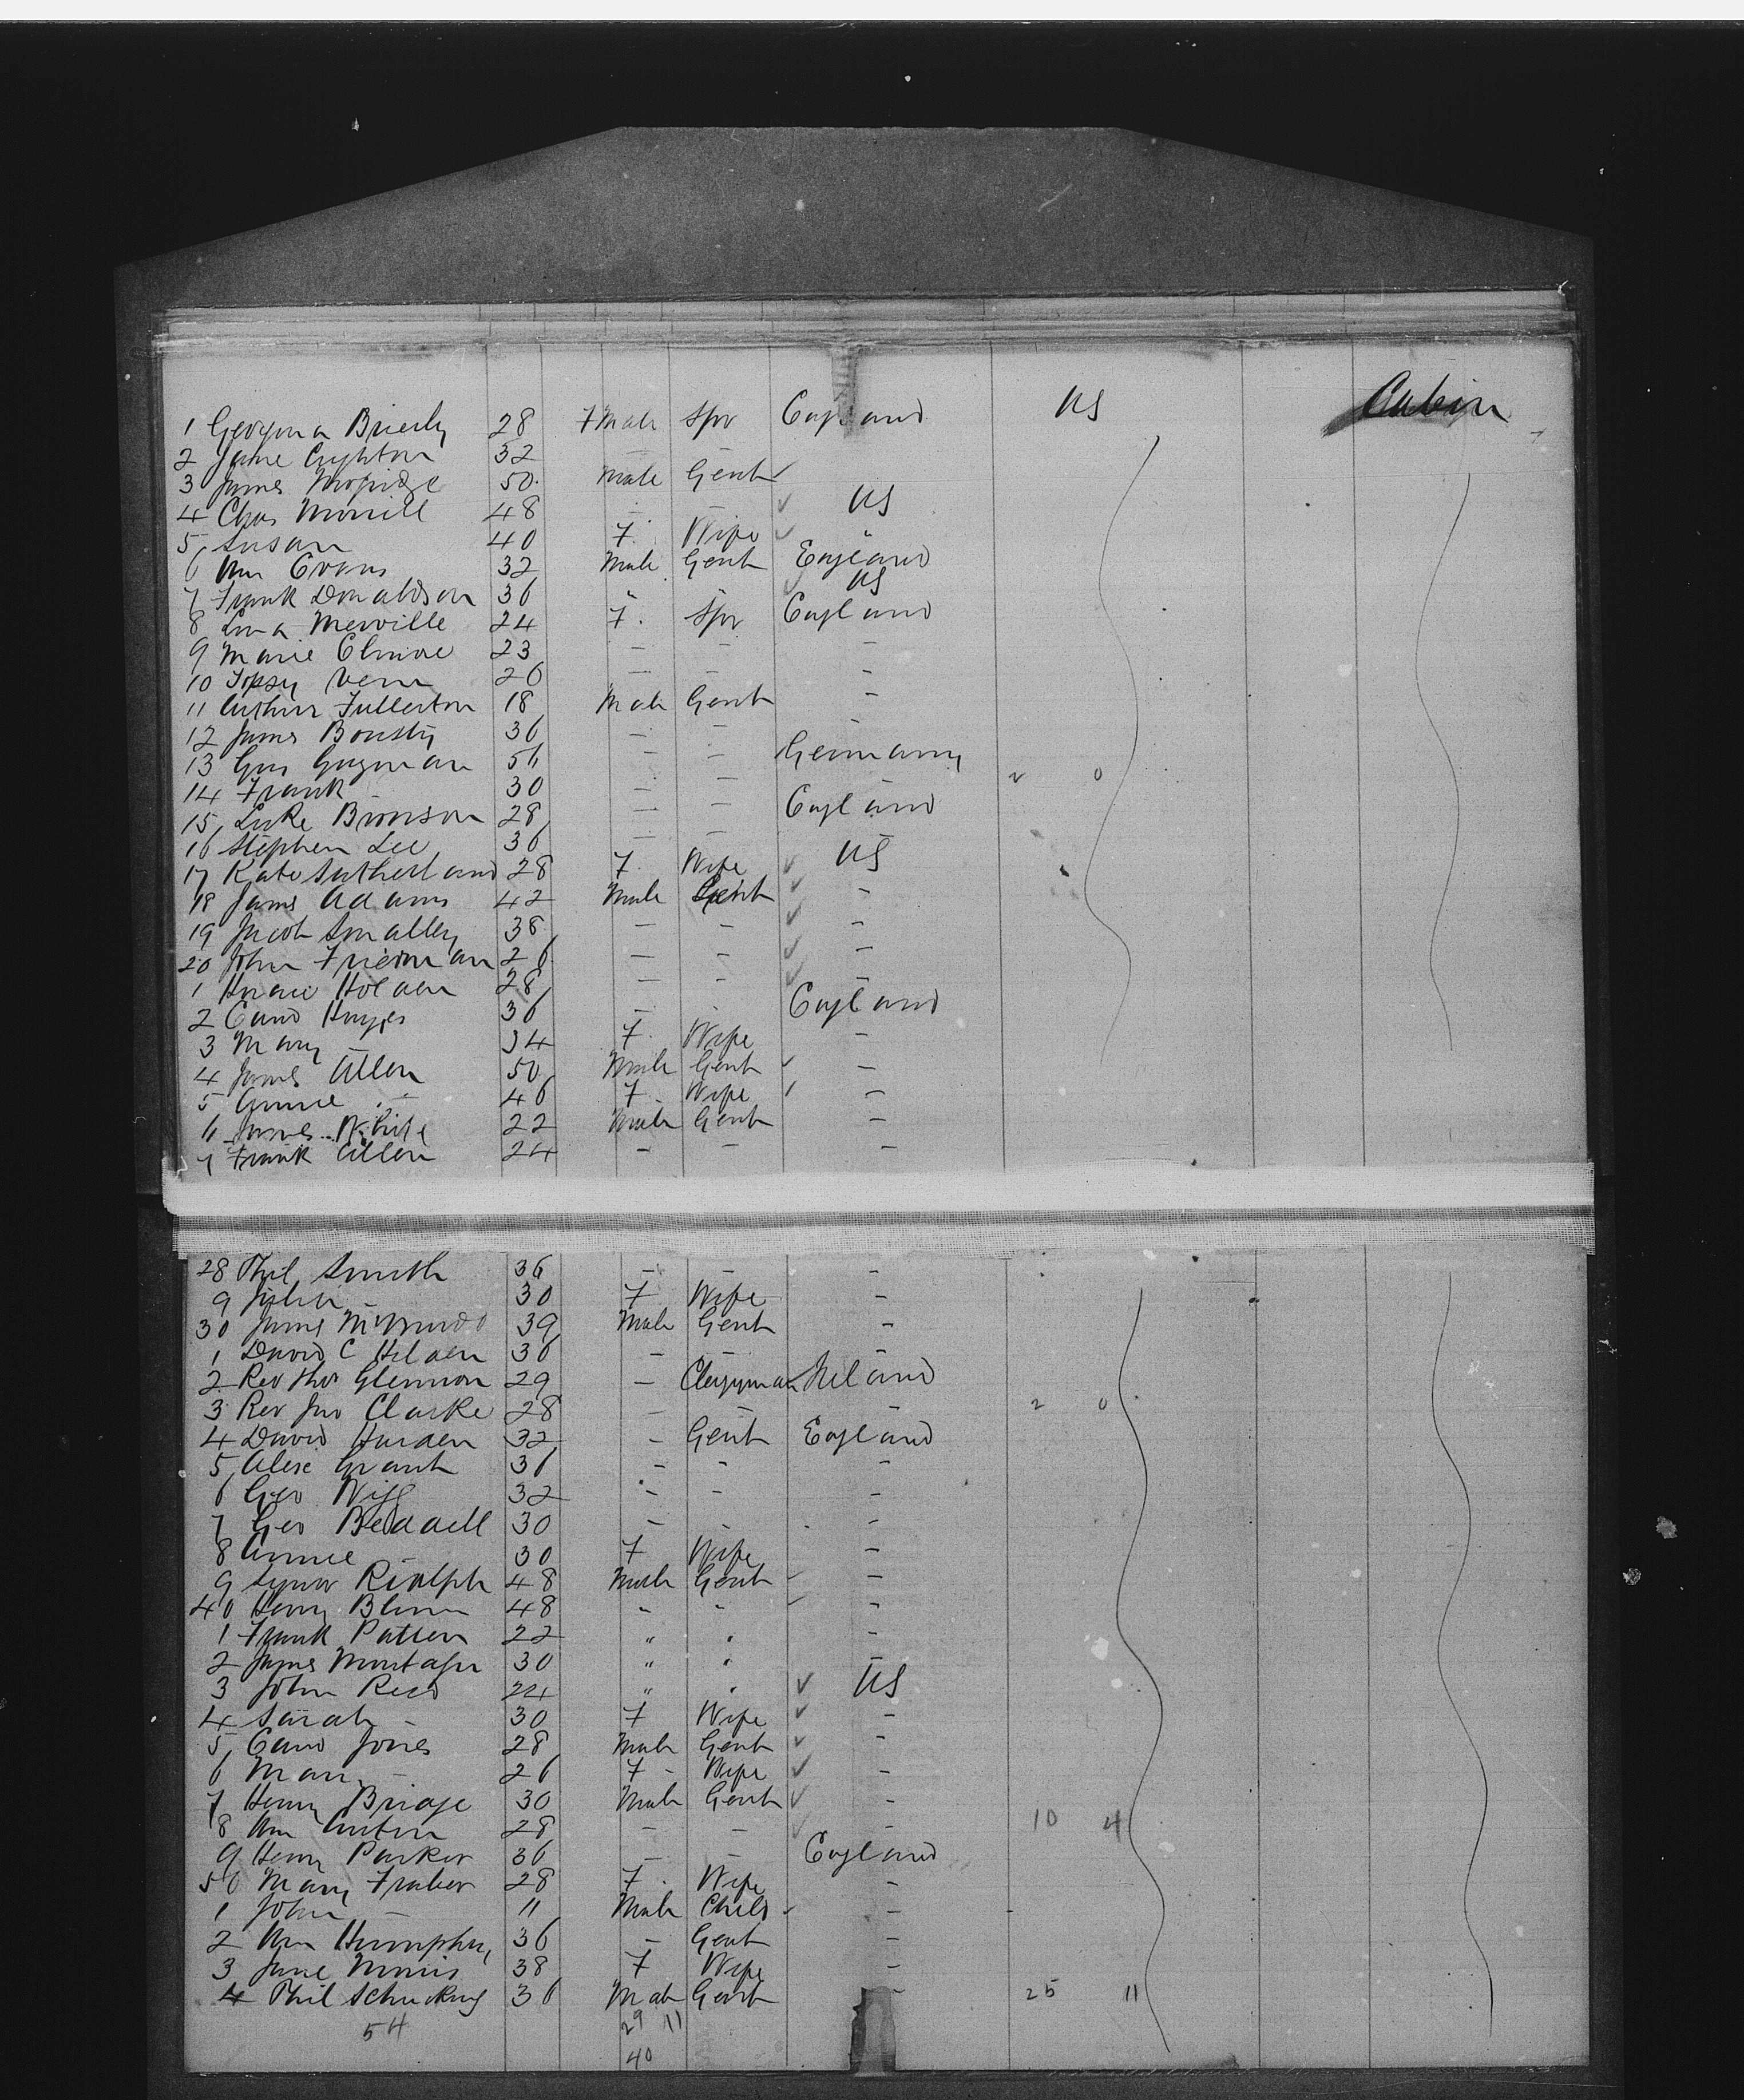 1 Georgina Brierly 28 Fmale Spr England US Cabin
2 Jane 32 — —
3 James 50 Male Gent
4 Chas Morrill 48 — — US
5 Susan 40 F. Wife "
6 Wm Evans 32 Male Gent England
7 Frank Donaldson 36 " " US
8 Merville 24 F. Spr England
9 Marie Elmore 23 — — —
10 Topsy Venn 26 — — —
11 Arthur Fullerton 18 Male Gent —
12 James 36 — — —
13 Gus Guzman 56 — — Germany
14 Frank — 30 — — — 2 0
15 Luke Bronson 28 — — England
16 Stephen Lee 36 — — —
17 Kate Sutherland 28 F. Wife US
18 James Adams 42 Male Gent —
19 Jacob Smalley 38 — — —
20 John Friedman 26 — — —
1 Holden 28 — — —
2 36 — — England
3 Mary — 34 F. Wife —
4 James Allen 50 Male Gent —
5 Annie — 46 F. Wife —
6 James White 22 Male Gent —
7 Frank Allen 24 — — —
28 Phil Smith 36 — — —
9 — 30 F Wife —
30 James 39 Male Gent —
1 David C Holden 36 — — —
2 Rev Thos Glennon 29 — Clergyman Ireland
3 Rev Jno Clarke 28 — — — 2 0
4 David Harden 32 — Gent England
5 Alex Grant 36 — — —
6 Geo 32 — — —
7 Geo Beddell 30 — — —
8 Annie — 30 F Wife —
9 Rudolph 48 Male Gent —
40 Henry 48 " " —
1 Frank Patten 22 " " —
2 James Montague 30 " "
3 John Reed 24 " " US
4 Sarah — 30 F Wife —
5 Jones 28 Male Gent —
6 Mary — 26 F — Wife —
7 Henry Bridge 30 Male Gent —
8 Wm 28 — — — 10 4
9 Henry Parker 36 — — England
50 Mary 28 F. Wife —
1 John — 11 Male Child —
2 Wm Humphry 36 — Gent —
3 Jane Morris 38 F Wife —
4 Phil 36 Male Gent — 25 11
54 29 11
40